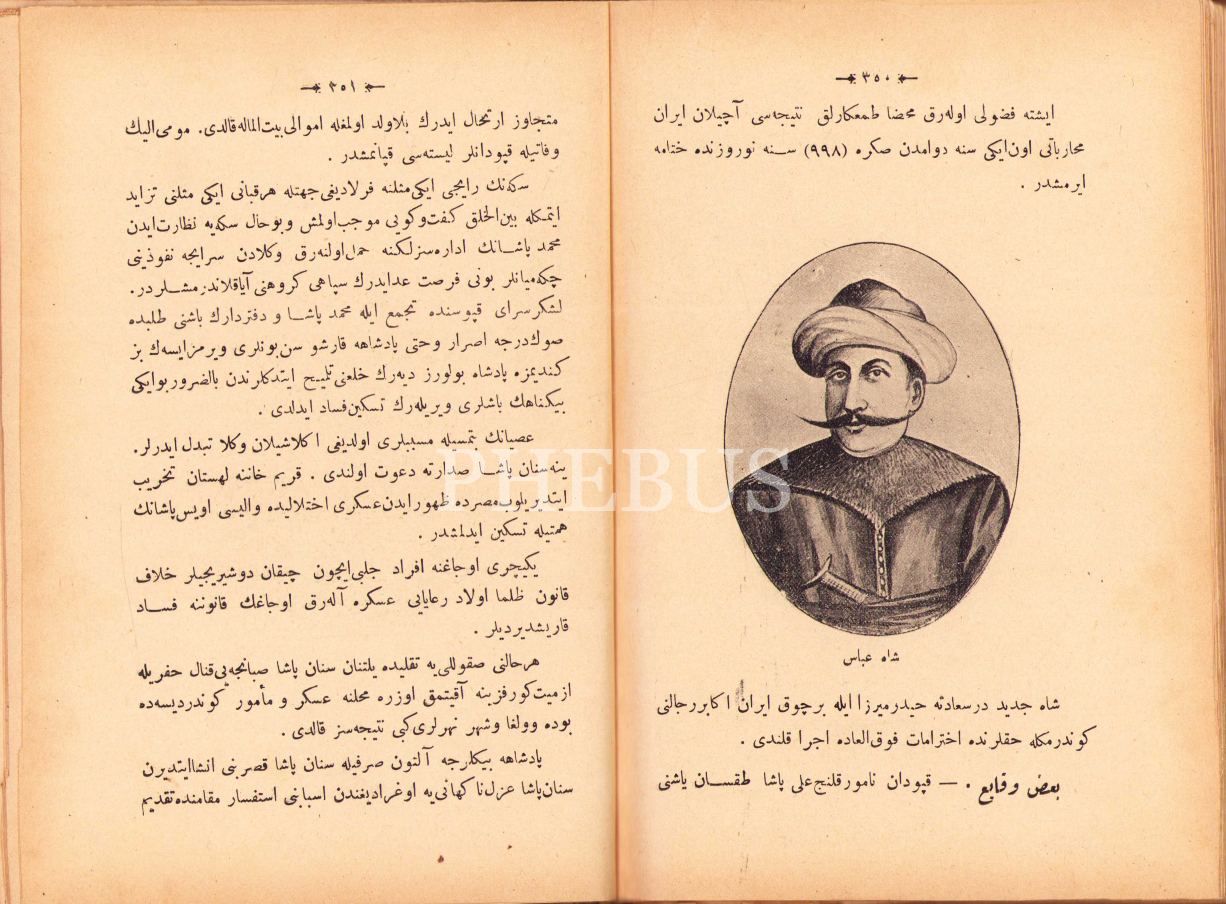 ٣٥٠
ایشته فضولی اوله‌رق محضا طمعکارلق نتیجه‌سی آچیلان ایران
محارباتی اون‌ایکی سنه دوامدن صکره (٩٩٨) سنه نوروزنده ختامه
ایرمشدر .
شاه عباس
شاه جدید درسعادته حیدرمیرزا ایله برچوق ایران اکابررجالنی
کوندرمکله حقلرنده احترامات فوق‌العاده اجرا قلندی .
بعض وقایع . — قپودان نامورقلنج‌علی پاشا طقسان یاشنی
٣٥١
متجاوز ارتحال ایدرك بلاولد اولمغله اموالی‌بیت‌الماله‌قالدی. مومی‌الیك
وفاتیله قپودانلر لیسته‌سی قپانمشدر .
سکه‌نك رایجی ایکی‌مثلنه فرلادیغی‌جهتله هرقبانی ایکی مثلنی تزاید
ایتمکله بین‌الخلق کفت‌وکویی موجب‌اولمش وبوحال سکه‌یه نظارت‌ایدن
محمد پاشانك اداره‌سزلکنه حمل‌اولنه‌رق وکلادن سرایجه نفوذینی
چکه‌میانلر بونی فرصت عدایدرك سپاهی کروهنی آیاقلاندرمشلردر.
لشکر سرای قپوسنده تجمع ایله محمد پاشا و دفتردارك باشنی طلبده
صوك‌درجه اصرار وحتی پادشاهه قارشو سن‌بونلری ویرمزایسه‌ك بز
کندیمزه پادشاه بولورز دیه‌رك خلعنی‌تلمیح ایتدکلرندن بالضروربوایکی
بیکناهك باشلری ویریله‌رك تسکین‌فساد ایدلدی .
عصیانك مسببلری اولدیغی اکلاشیلان وکلا تبدل ایدرلر.
ینه‌سنان پاشا صدارته دعوت اولندی . قریم خاننه لهستان تخریب
ایتدیریلوب‌مصرده ظهورایدن‌عسکری اختلالیده والیسی اویس‌پاشانك
همتیله تسکین ایدلمشدر .
یکیچری اوجاغنه افراد جلبی‌ایچون چیقان دوشیریجیلر خلاف
قانون ظلما اولاد رعایایی عسکره آله‌رق اوجاغك قانوننه فساد
قاریشدیردیلر .
هرحالنی صقوللی‌یه تقلیده یلتنان سنان پاشا صبانجه‌یی‌قنال حفریله
ازمیت‌کورفزینه آقیتمق اوزره محلنه عسکر و مأمور کوندردیسه‌ده
بوده وولغا وشهر نهرلری‌کبی نتیجه‌سز قالدی .
پادشاهه بیکلرجه آلتون صرفیله سنان پاشا قصرینی انشاایتدیرن
سنان‌پاشا عزل‌ناکهانی‌یه اوغرادیغندن اسبابنی استفسار مقامنده‌تقدیم
PHEBUS